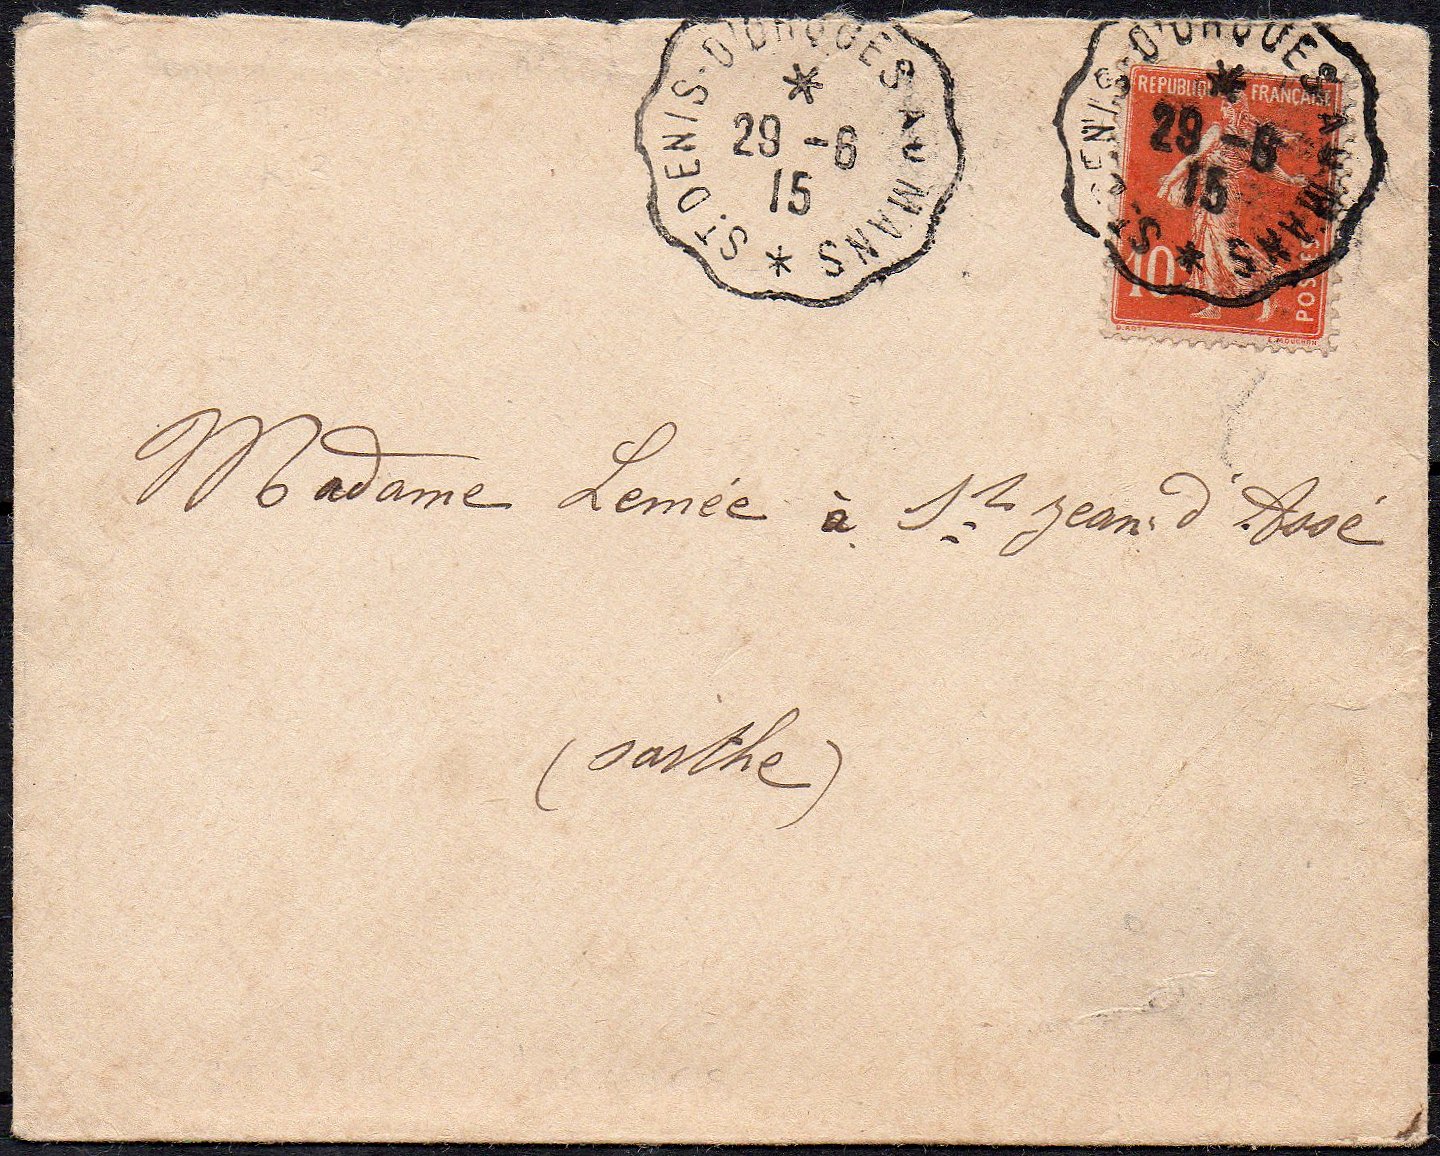 ST DENIS-D'ORQUES AU MANS
29 -6
15
ST DENIS-D'ORQUES AU MANS
29 -6
15
REPUBLIQUE FRANÇAISE
10
POSTES
O. ROTY
E. MOUCHON
Madame Lemée à St Jean d'Assé
(sarthe)